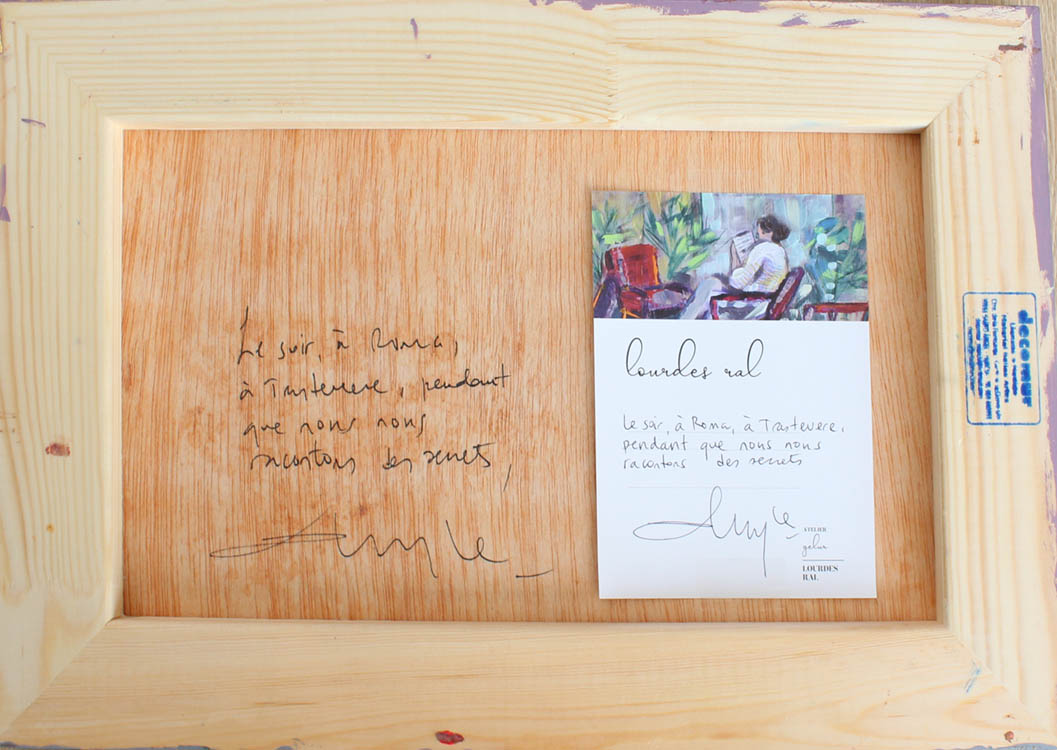 Le soir, à Roma,
à Trastevere, pendant
que nous nous
racontons des secrets,
lourdes ral
Le soir, à Roma, à Trastevere,
pendant que nous nous
racontons des secrets
ATELIER
LOURDES
RAL
decomut